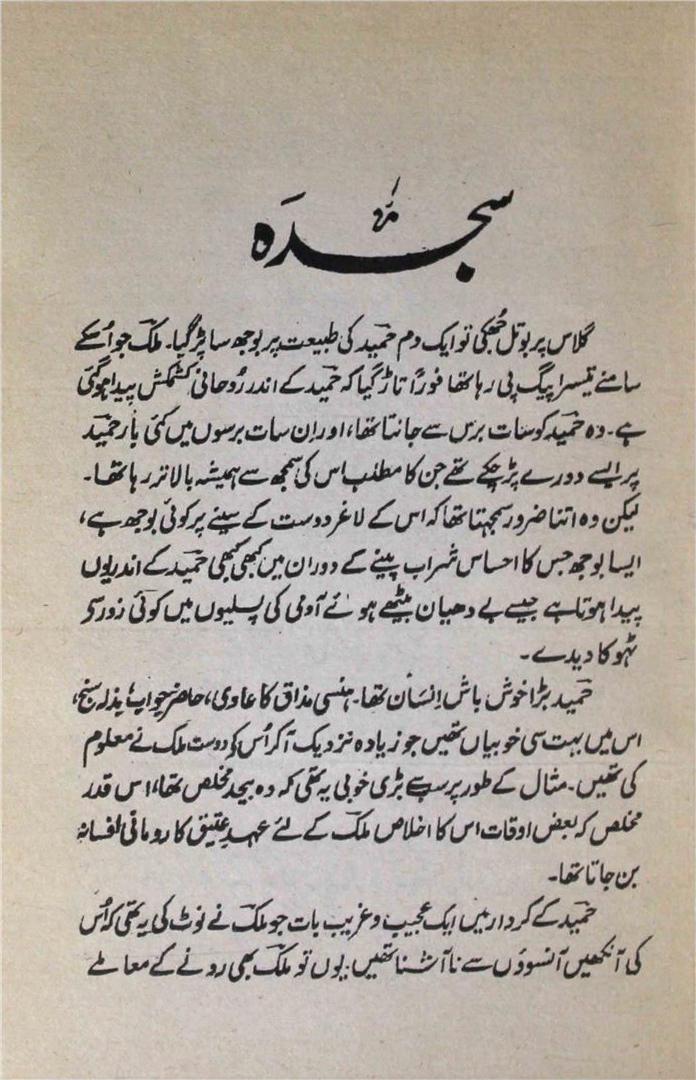 سجدہ
گلاس پر بوتل جُھکی تو ایک دم حمید کی طبیعت پر بوجھ سا پڑ گیا۔ ملک جو اُسکے
سامنے تیسرا پیگ پی رہا تھا فوراً تاڑ گیا کہ حمید کے اندر رُوحانی کشمکش پیدا ہوگئی
ہے۔ وہ حمید کو سات برس سے جانتا تھا، اور ان سات برسوں میں کئی بار حمید
پر ایسے دورے پڑ چکے تھے جن کا مطلب اس کی سمجھ سے ہمیشہ بالاتر رہا تھا۔
لیکن وہ اتنا ضرور سمجھتا تھا کہ اس کے لاغر دوست کے سینے پر کوئی بوجھ ہے،
ایسا بوجھ جس کا احساس شراب پینے کے دوران میں کبھی کبھی حمید کے اندر یوں
پیدا ہوتا ہے جیسے بے دھیان بیٹھے ہوئے آدمی کی پسلیوں میں کوئی زور سے
ٹہوکا دیدے۔
حمید بڑا خوش باش اِنسان تھا۔ ہنسی مذاق کا عادی، حاضر جواب، بذلہ سنج،
اس میں بہت سی خوبیاں تھیں جو زیادہ نزدیک آکر اُس کے دوست ملک نے معلوم
کی تھیں۔ مثال کے طور پر سب سے بڑی خوبی یہ تھی کہ وہ بیحد مخلص تھا، اس قدر
مخلص کہ بعض اوقات اس کا اخلاص ملک کے لئے عہدِ عتیق کا رومانی افسانہ
بن جاتا تھا۔
حمید کے کردار میں ایک عجیب و غریب بات جو ملک نے نوٹ کی یہ تھی کہ اُس
کی آنکھیں آنسوؤں سے ناآشنا تھیں، یوں تو ملک بھی رونے کے معاملے